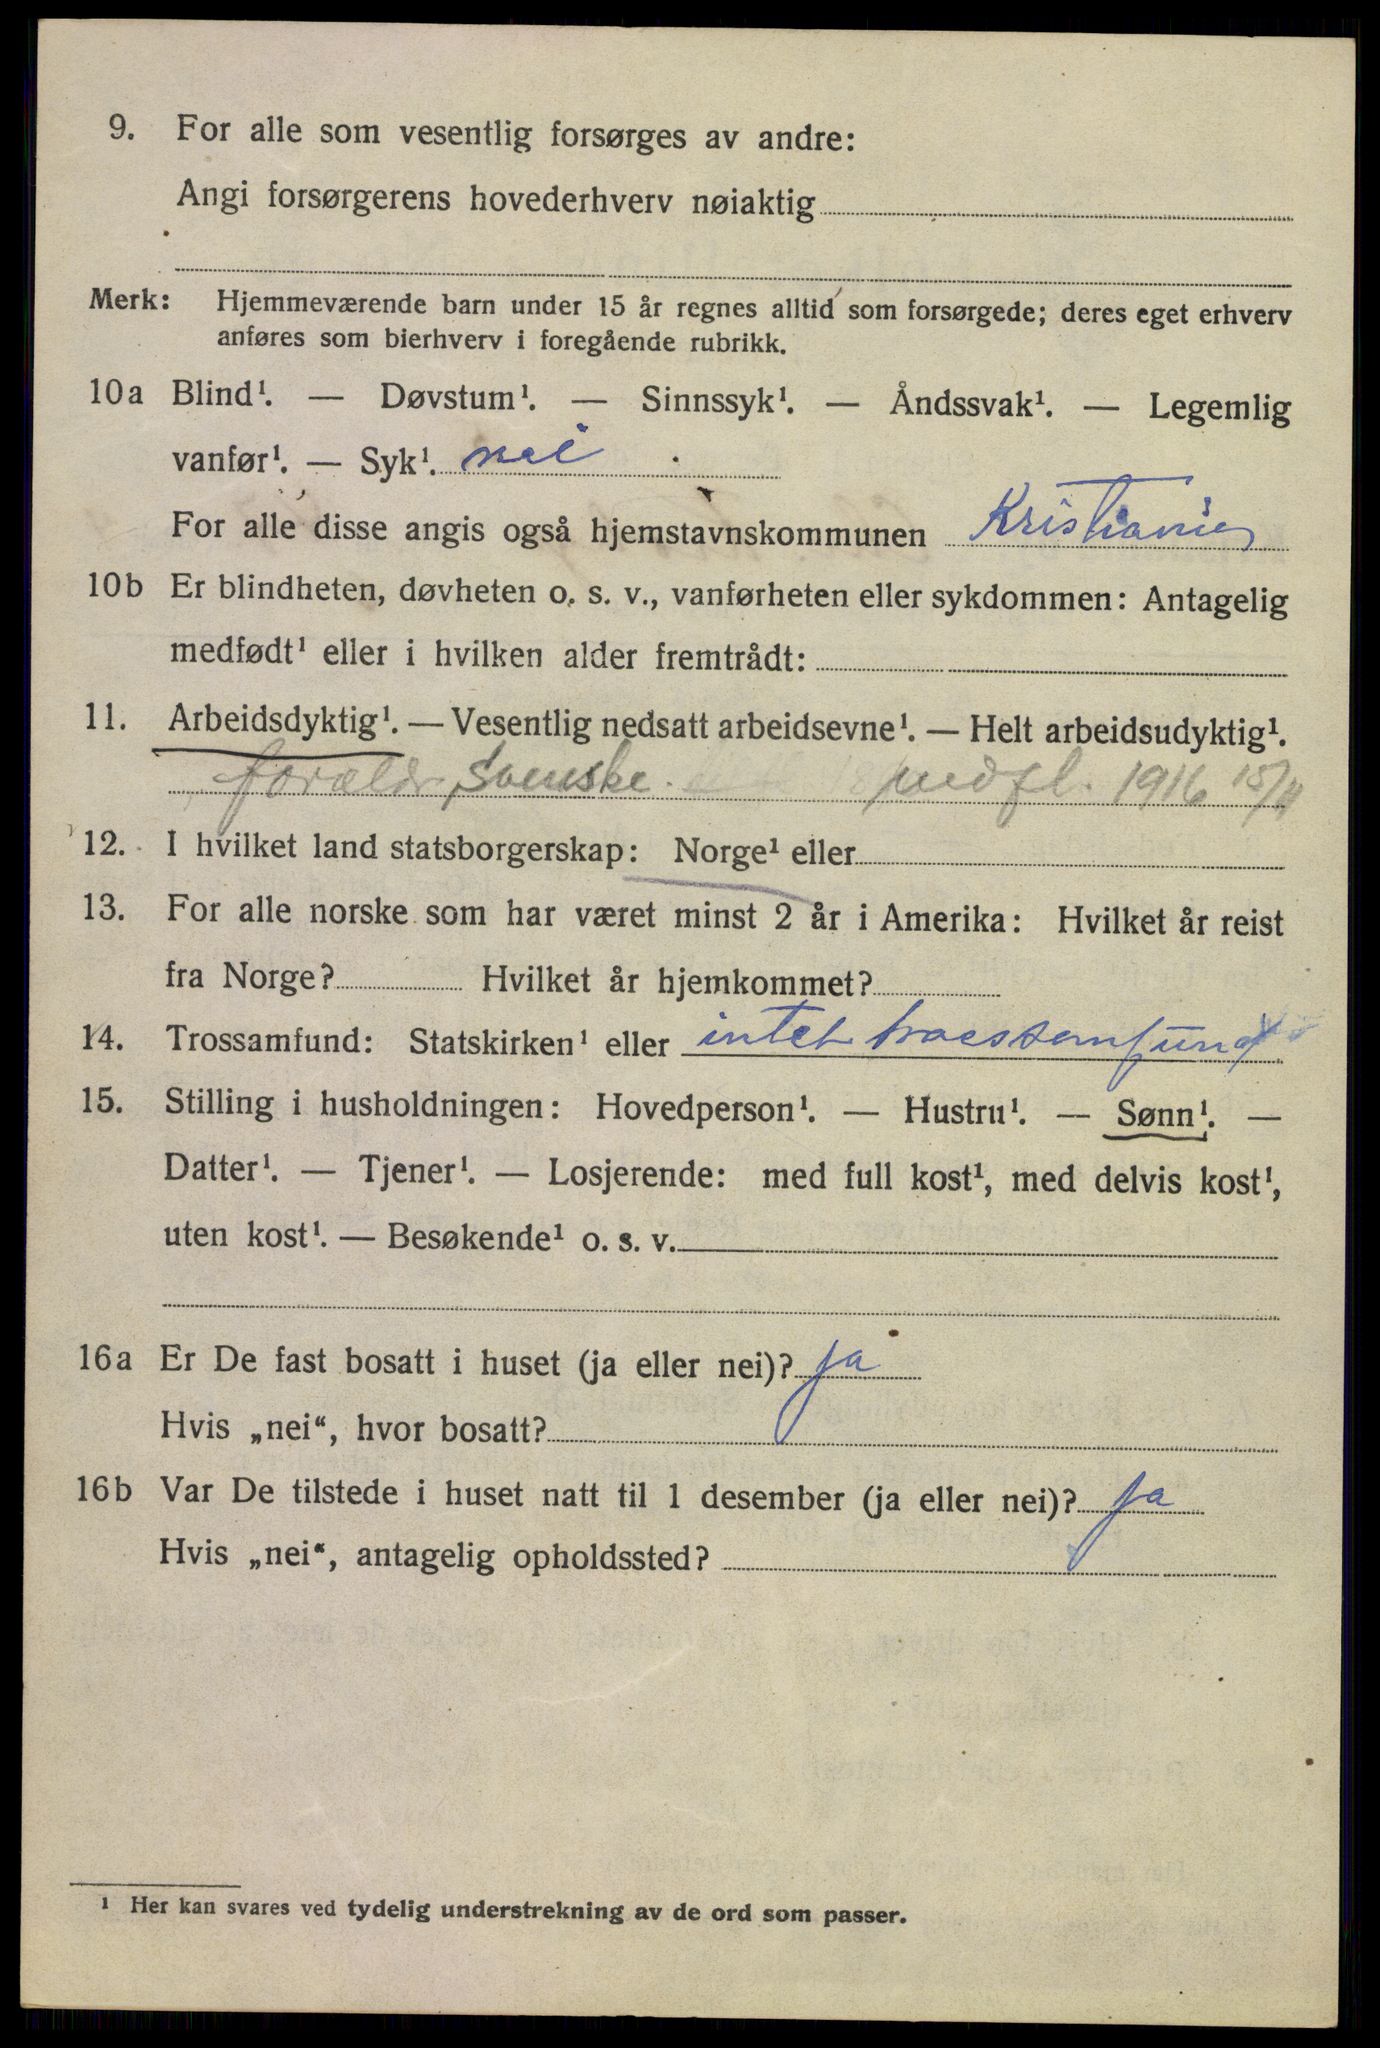 9. For alle som vesentlig forsørges av andre:
Angi forsørgerens hovederhverv nøiaktig
Merk: Hjemmeværende barn under 15 år regnes alltid som forsørgede; deres eget erhverv
anføres som bierhverv i foregående rubrikk.
10a Blind¹. — Døvstum¹. — Sinnssyk¹. — Åndssvak¹. — Legemlig
vanfør¹. — Syk¹. nei
For alle disse angis også hjemstavnskommunen Kristiania
10b Er blindheten, døvheten o. s. v., vanførheten eller sykdommen: Antagelig
medfødt¹ eller i hvilken alder fremtrådt:
11. Arbeidsdyktig¹. — Vesentlig nedsatt arbeidsevne¹. — Helt arbeidsudyktig¹.
forældr svenske. indfl. 1916 15/11
12. I hvilket land statsborgerskap: Norge¹ eller
13. For alle norske som har været minst 2 år i Amerika: Hvilket år reist
fra Norge? Hvilket år hjemkommet?
14. Trossamfund: Statskirken¹ eller intet
15. Stilling i husholdningen: Hovedperson¹. — Hustru¹. — Sønn¹. —
Datter¹. — Tjener¹. — Losjerende: med full kost¹, med delvis kost¹,
uten kost¹. — Besøkende¹ o. s. v.
16a Er De fast bosatt i huset (ja eller nei)? ja
Hvis „nei“, hvor bosatt?
16b Var De tilstede i huset natt til 1 desember (ja eller nei)? ja
Hvis „nei“, antagelig opholdssted?
¹ Her kan svares ved tydelig understrekning av de ord som passer.